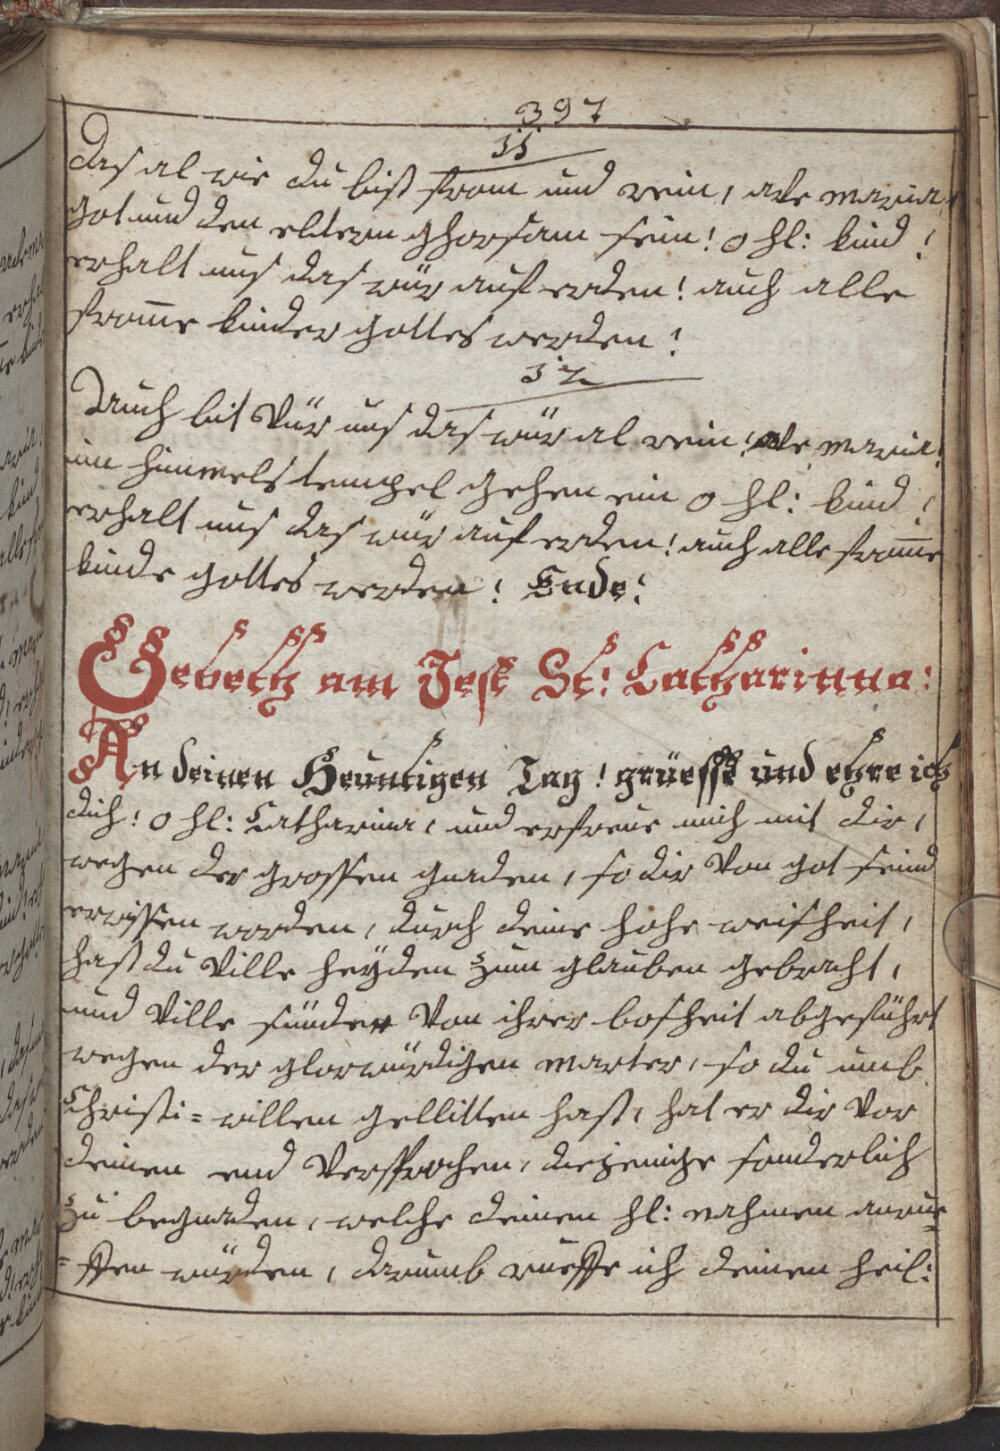 397
11
das al wie du bist from und rein, ave maria,
got und den eltern ghorsam sein! o hl: kind!
erhalt uns das wür auf erden! auch alle
from̄e kinder gottes werden!
12
Auch bit Vür uns das wür al rein! ave maria!
im himmels tempel gehen ein o hl: kind!
erhalt uns das wür auf erden! auch alle from̄e
kinde gottes werden! Ende!
Gebeth am Fest St: Catharinna:
An deinen Heuntigen Tag! grüesse und ehre ich
dich! o hl: Catharina, und erfreue mich mit dir,
wegen der grossen gnaden, so dir Von got seind
erwissen worden, durch deine hohe weisheit,
hast du Ville heyden zum glauben gebracht,
und Ville sünder Von ihrer bosheit abgeführt
wegen der glorwürdigen marter, so du umb
Christi = willen gellitten hast, hat er dir Vor
deinen end Versprochen, diejenige sonderlich
zu begnaden, welche deinen hl: nahmen anrue=
=ffen würden, darumb rueffe ich deinen heil: